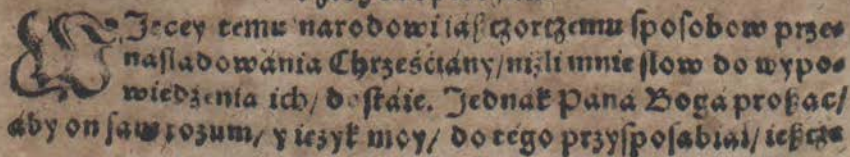 WJęcey temu narodowi iaßczorczemu ſpoſobow prze-
naſladowánia Chrześćiány/niżli mnie ſlow do wypo-
wiedzenia ich/ doſtáie. Jednák Páná Bogá proßąc/
áby on ſam rozum/ y ięzyk moy/ do tego przyſpoſabiał/ ießcze